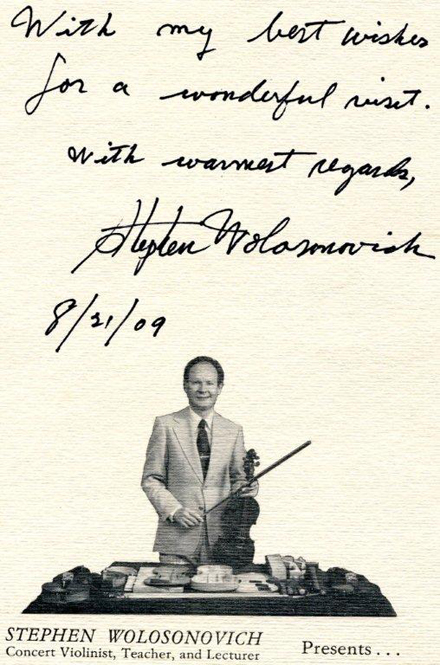 With my best wishes
for a wonderful visit.
With warmest regards,
Stephen Wolosonovich
8/21/09
STEPHEN WOLOSONOVICH
Concert Violinist, Teacher, and Lecturer
Presents...